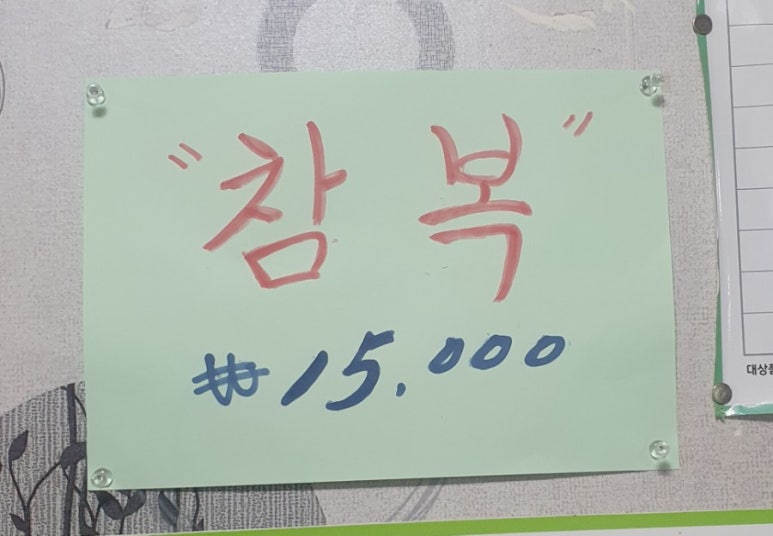 "참 복"
₩15.000
대상